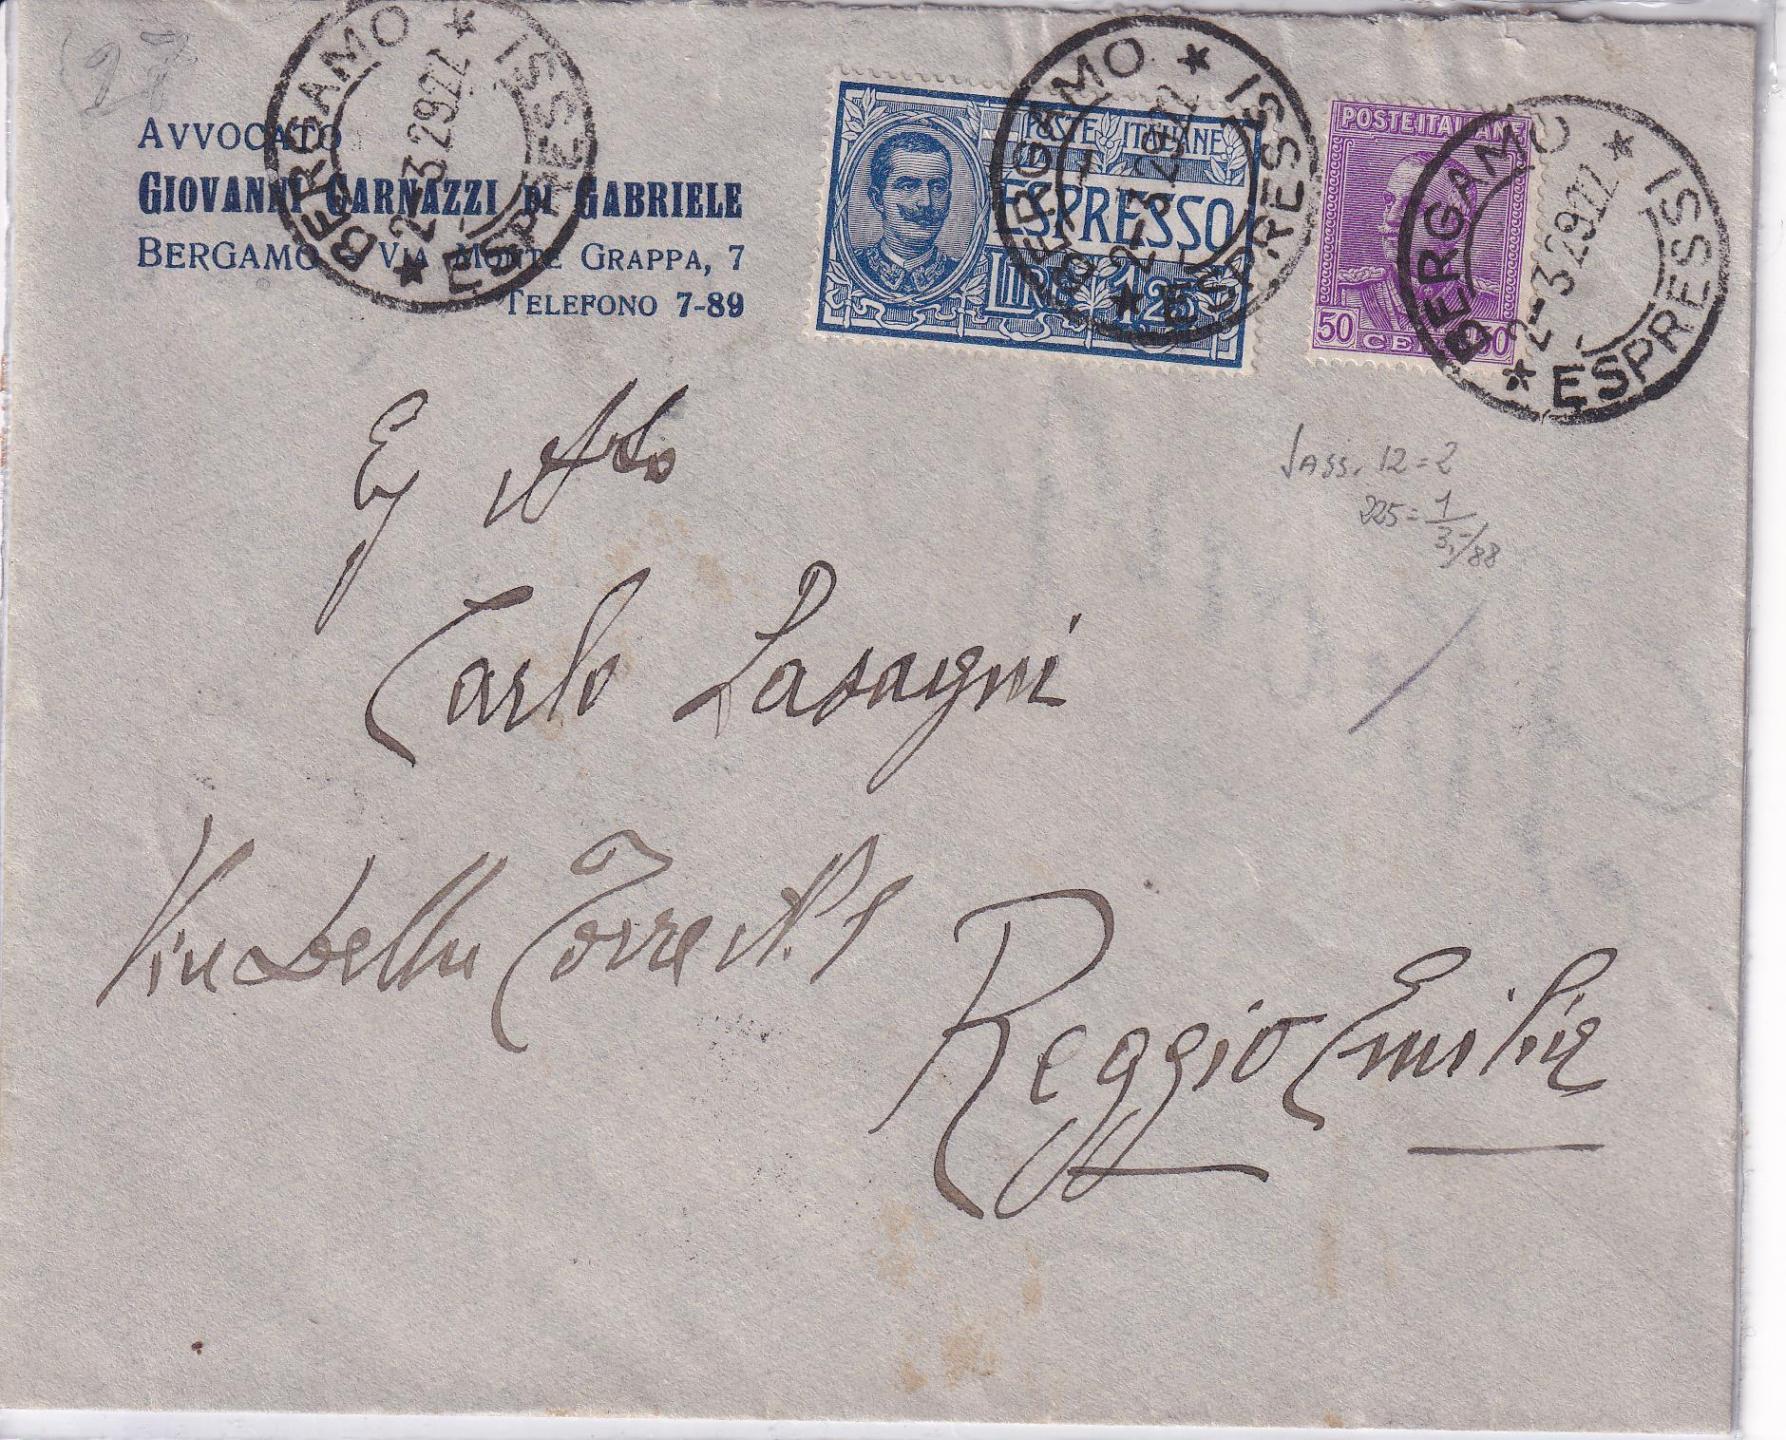 27
AVVOCATO
GIOVANNI CARNAZZI DI GABRIELE
BERGAMO - VIA MONTE GRAPPA, 7
TELEFONO 7-89
BERGAMO * ESPRESSI *
2-3 29
POSTE ITALIANE
ESPRESSO
LIRE 1,25
BERGAMO * ESPRESSI *
2-3 29
POSTE ITALIANE
50 CENT 50
BERGAMO * ESPRESSI *
2-3 29
Sass. 12=2
225=1
3,-/88
Eg
Carlo Lasagni
Via Della Torre N. 1
Reggio Emilia